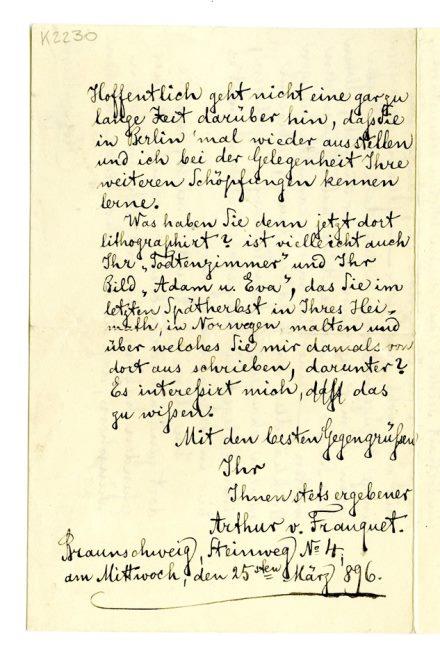 K2230
Hoffentlich geht nicht eine gar zu
lange Zeit darüber hin, daß Sie
in Berlin 'mal wieder ausstellen
und ich bei der Gelegenheit Ihre
weiteren Schöpfungen kennen
lerne.
Was haben Sie denn jetzt dort
lithographirt? ist vielleicht auch
Ihr „Todtenzimmer" und Ihr
Bild „Adam u. Eva", das Sie im
letzten Spätherbst in Ihres Hei-
math, in Norwegen, malten und
über welches Sie mir damals von
dort aus schrieben, darunter?
Es interessirt mich, das
zu wißen.
Mit den besten Gegengrüßen
Ihr
Ihnen stets ergebener
Arthur v. Franquet.
Braunschweig, Steinweg No 4,
am Mittwoch, den 25sten März 896.